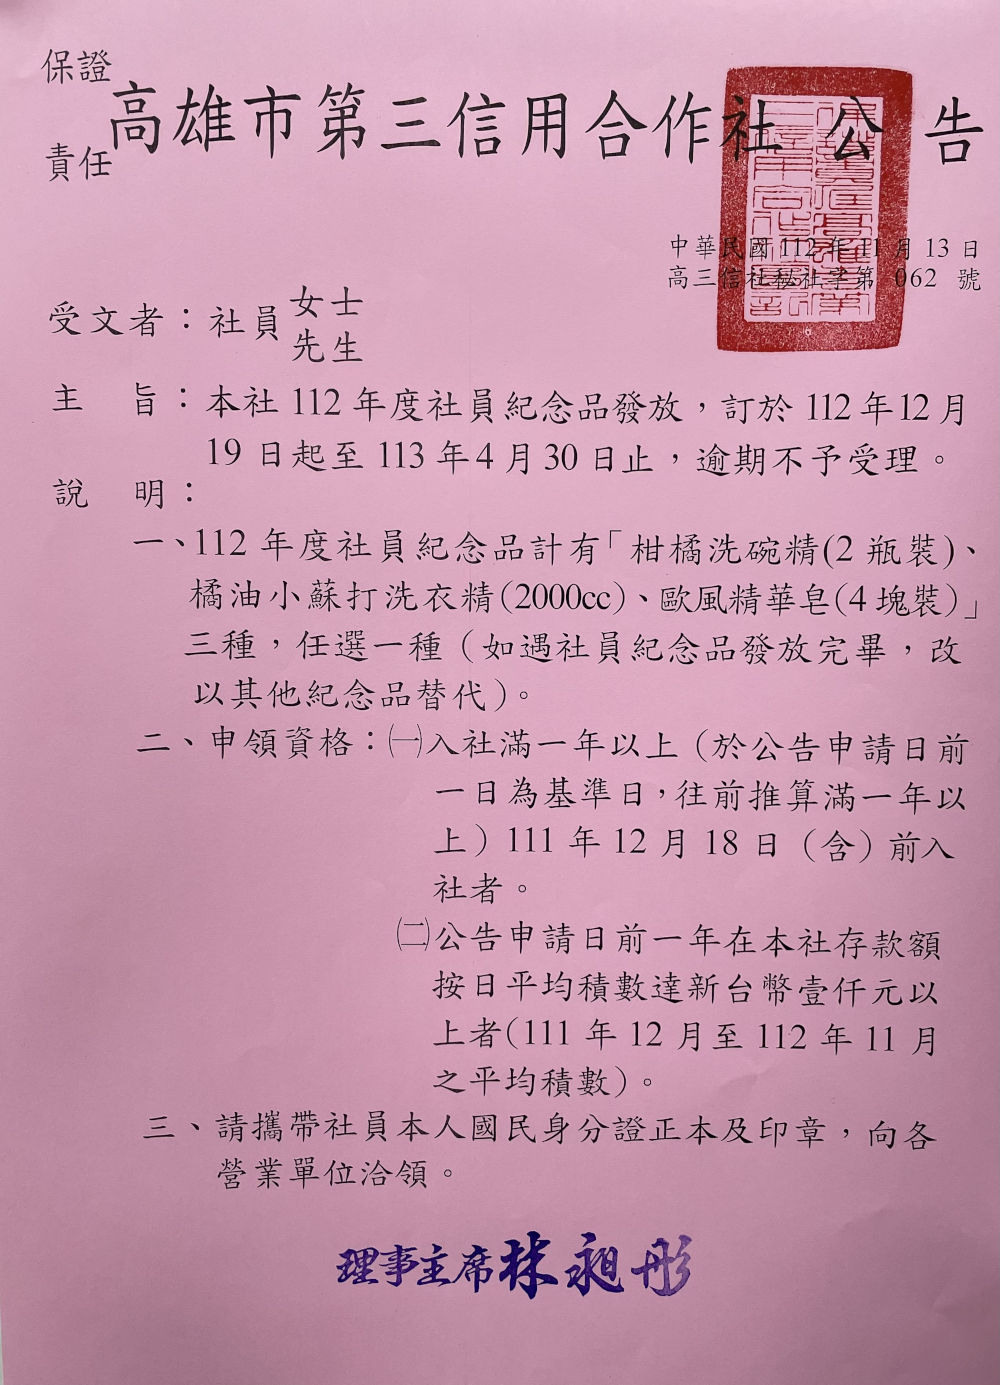 保證
責任
高雄市第三信用合作社 公告
中華民國 112 年 11 月 13 日
高三信社秘社字第 062 號
受文者：社員 女士
先生
主 旨：本社 112 年度社員紀念品發放，訂於 112 年12 月
19 日起至 113 年4 月 30 日止，逾期不予受理。
說 明：
一、112 年度社員紀念品計有「柑橘洗碗精(2 瓶裝)、
橘油小蘇打洗衣精(2000cc)、歐風精華皂(4 塊裝)」
三種，任選一種（如遇社員紀念品發放完畢，改
以其他紀念品替代）。
二、申領資格：㈠入社滿一年以上（於公告申請日前
一日為基準日，往前推算滿一年以
上）111 年 12 月 18 日（含）前入
社者。
㈡公告申請日前一年在本社存款額
按日平均積數達新台幣壹仟元以
上者(111 年 12 月至 112 年 11 月
之平均積數)。
三、請攜帶社員本人國民身分證正本及印章，向各
營業單位洽領。
理事主席 林昶彤